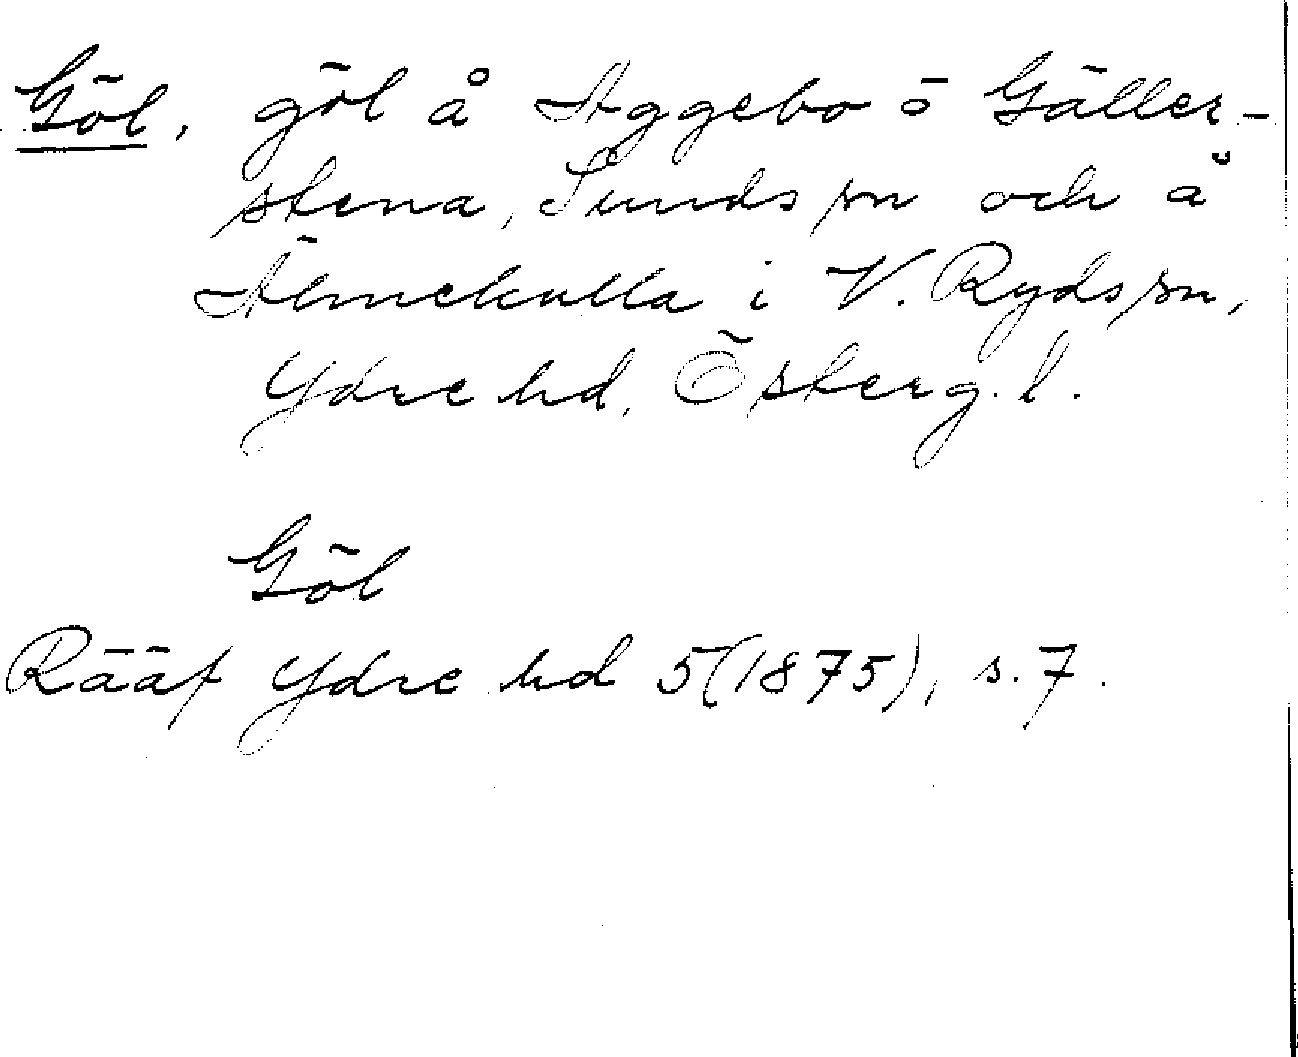 Göl, göl å Aggebo ö Gäller-
stena, Sunds sn och å
Älmekulla i V. Ryds sn,
Ydre hd, Österg. l.
Göl
Rääf Ydre hd 5(1875), s. 7.